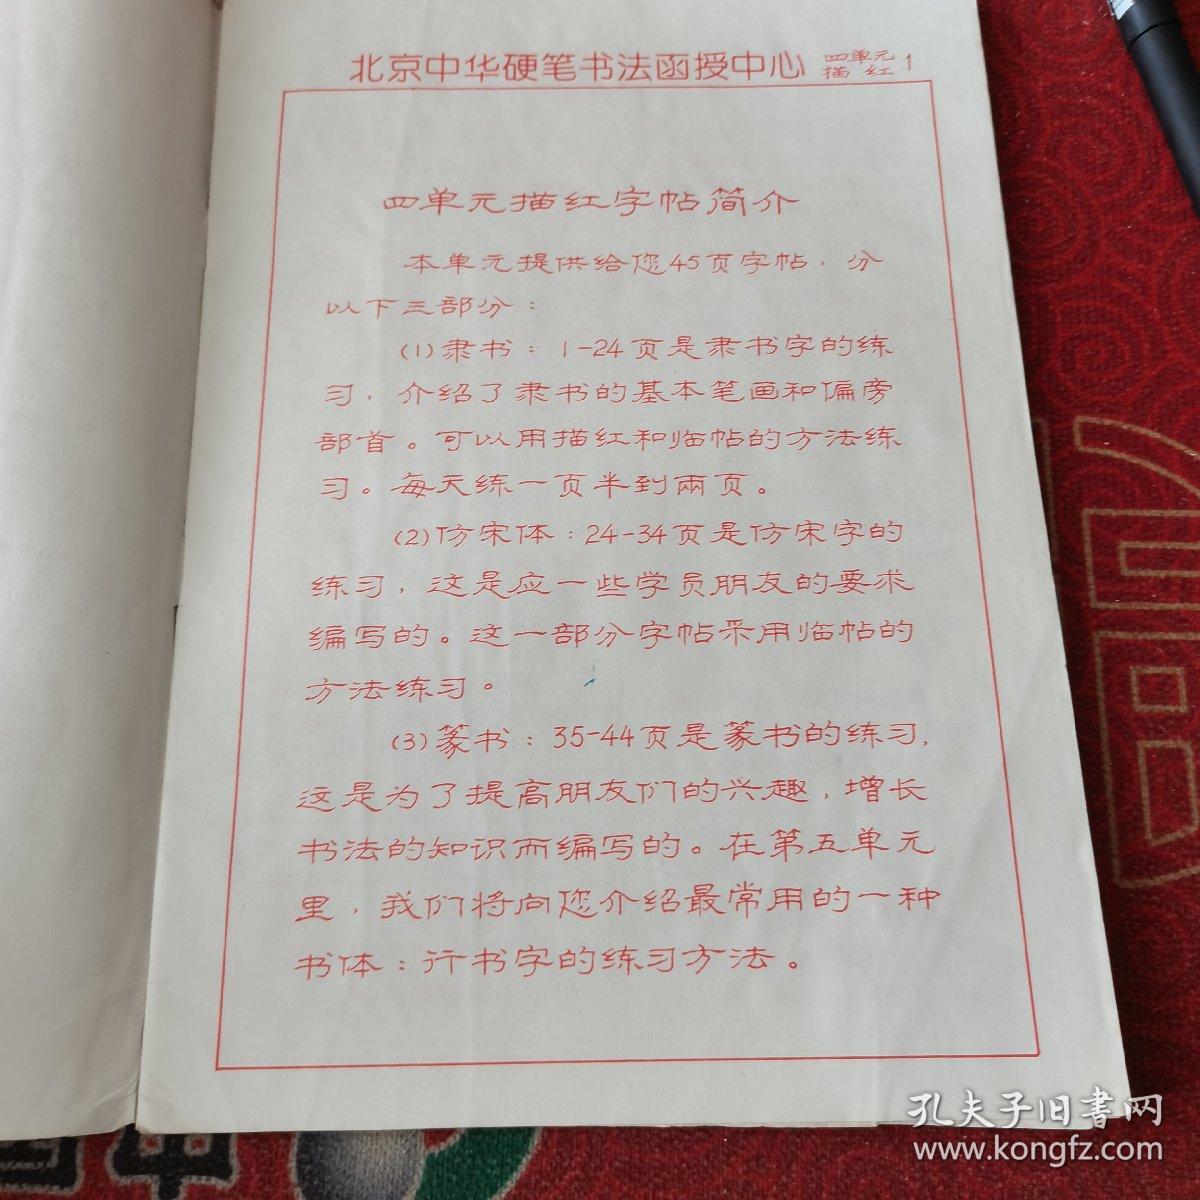 北京中华硬笔书法函授中心 四单元描红 1
四单元描红字帖简介
本单元提供给您45页字帖，分
以下三部分：
(1)隶书：1-24页是隶书字的练
习，介绍了隶书的基本笔画和偏旁
部首。可以用描红和临帖的方法练
习。每天练一页半到兩页。
(2)仿宋体：24-34页是仿宋字的
练习，这是应一些学员朋友的要求
编写的。这一部分字帖采用临帖的
方法练习。
(3)篆书：35-44页是篆书的练习，
这是为了提高朋友们的兴趣，增长
书法的知识而编写的。在第五单元
里，我们将向您介绍最常用的一种
书体：行书字的练习方法。
孔夫子旧書网
www.kongfz.com